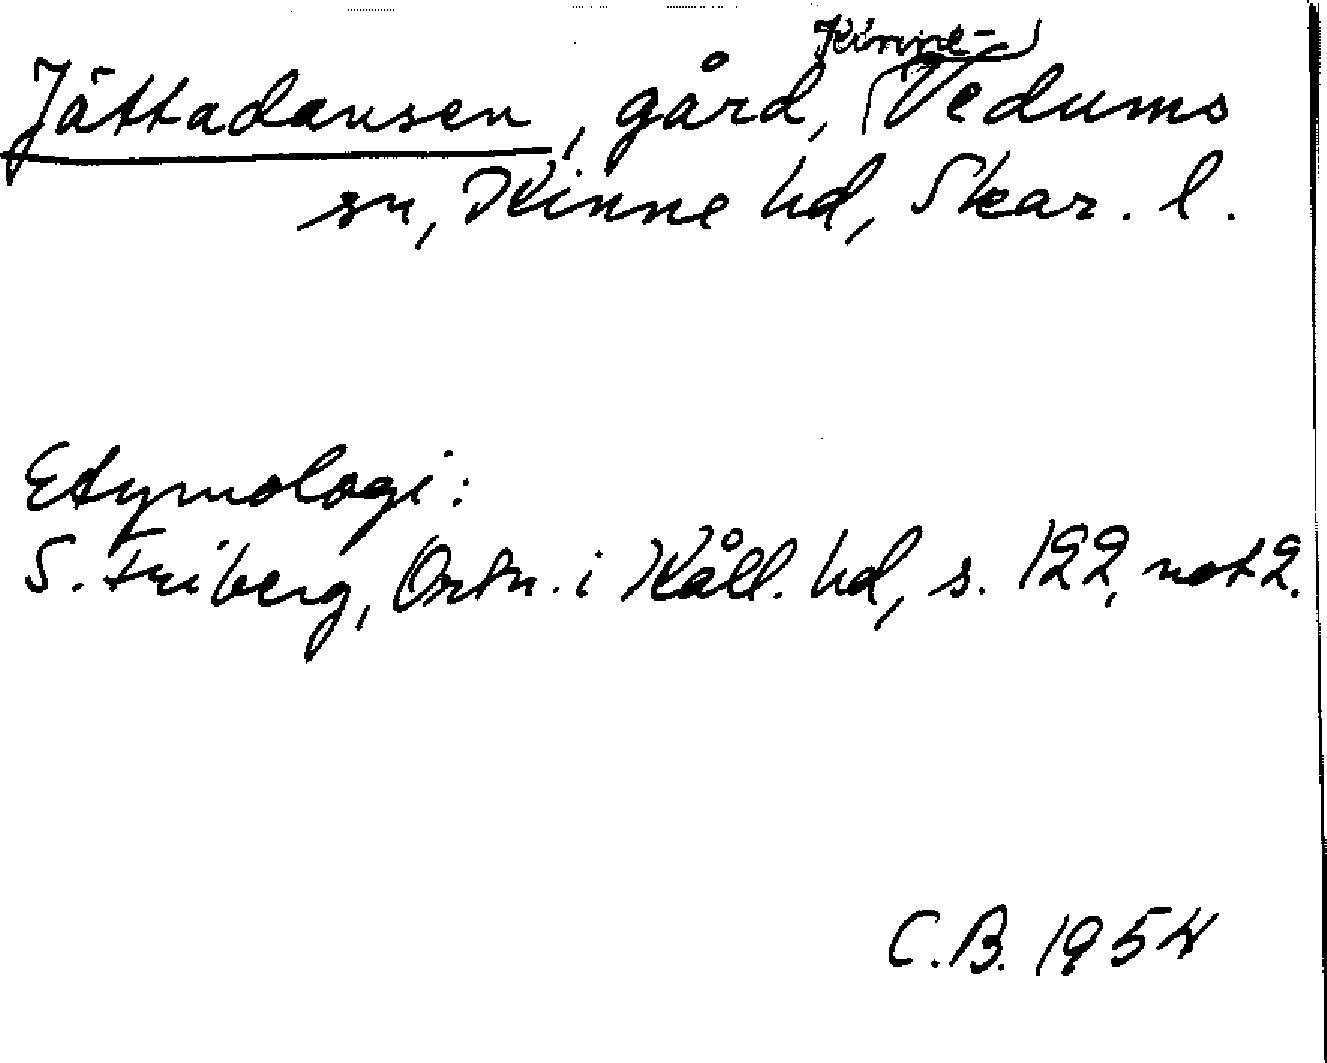 Kinne-
Jättadansen, gård, Vedums
sn, Kinne hd, Skar. l.
Etymologi:
S. Friberg, Ortn. i Kåll. hd, s. 122, not 2.
C.B. 1954